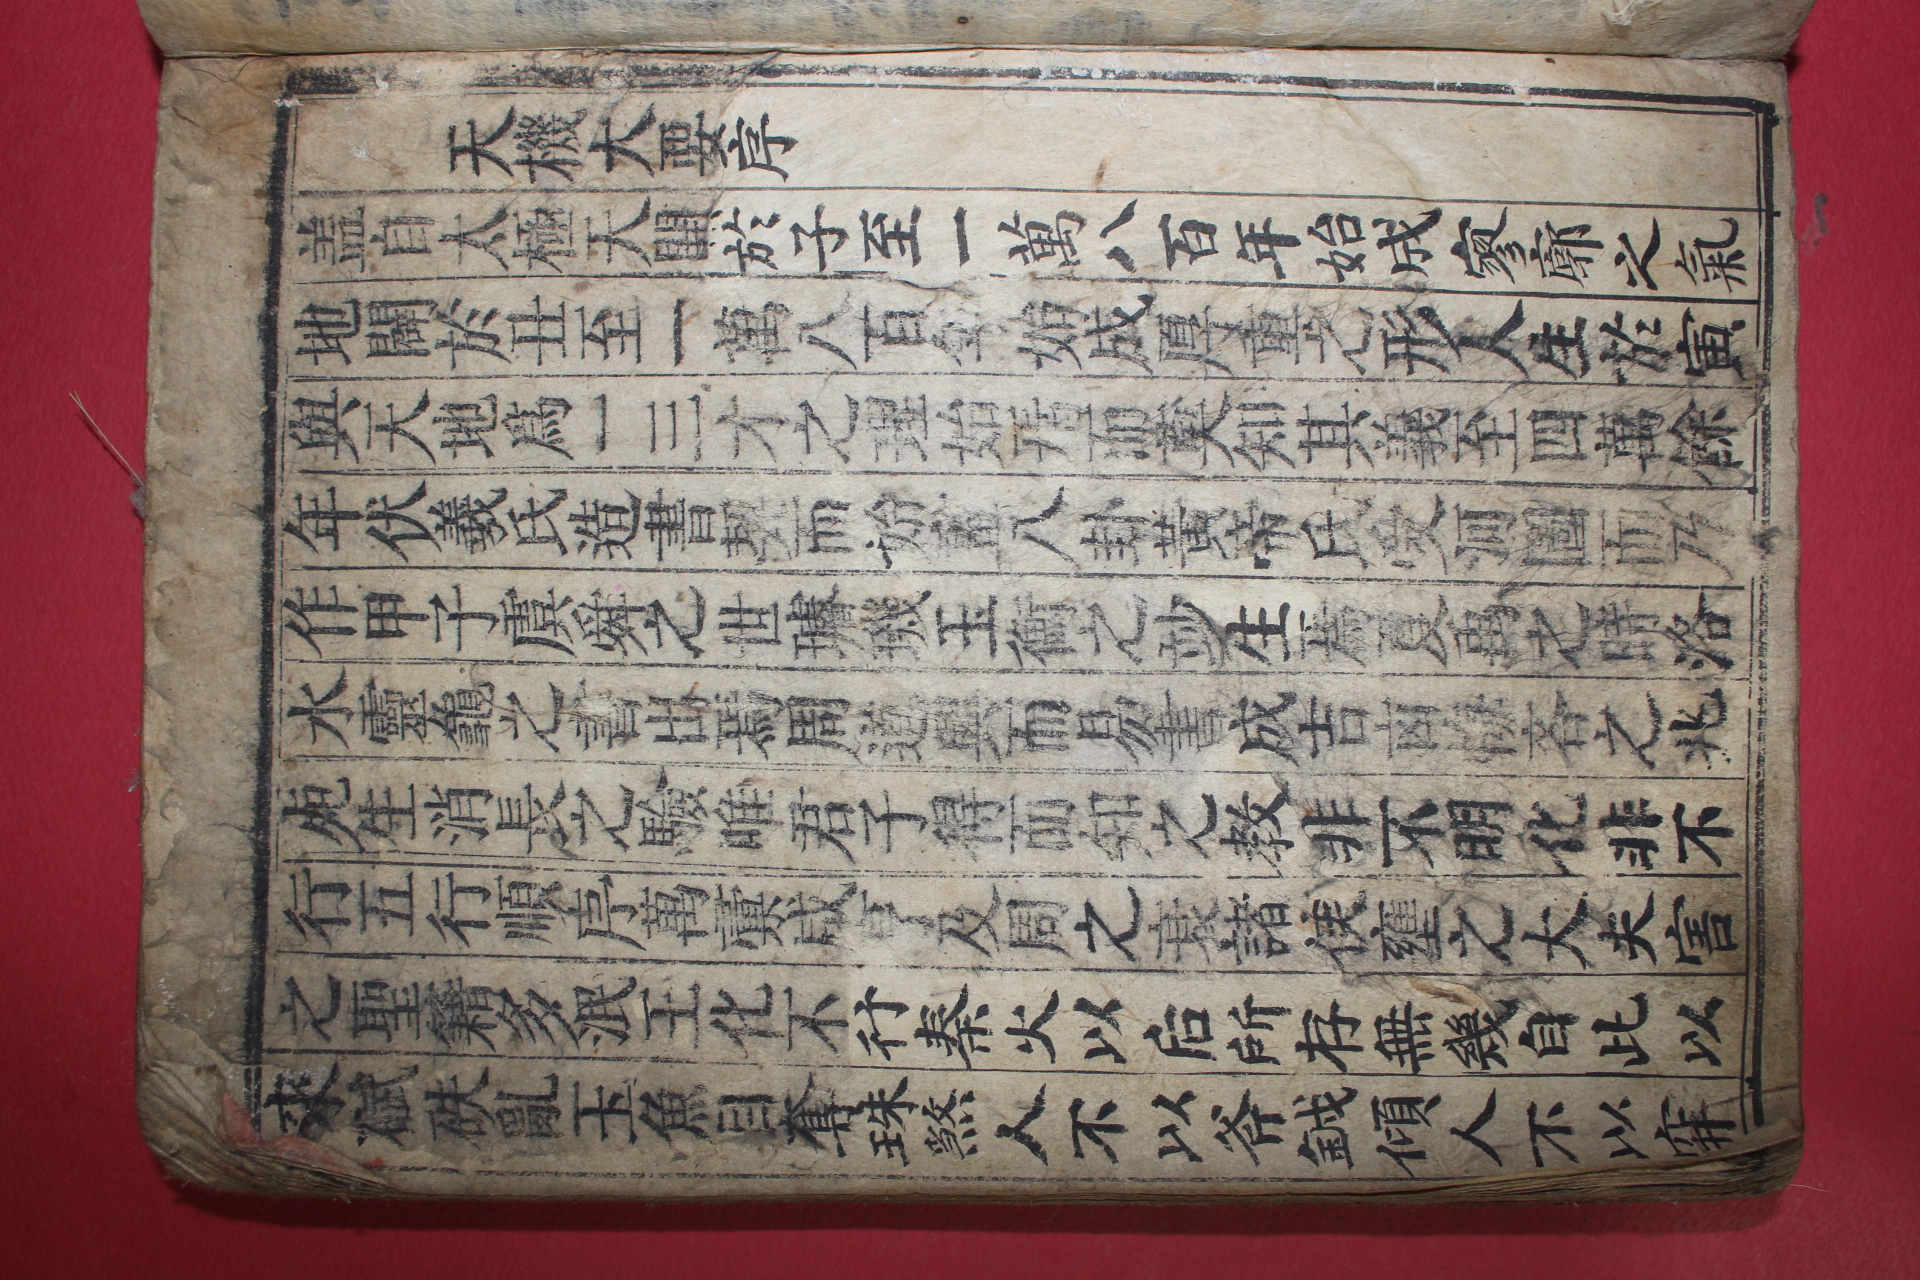 天機大要序
盖自太極天開於子至一萬八百年始成寥廓之氣
地闢於丑至一萬八百年始成厚重之形人生於寅
與天地爲一三才之理始著而莫知其義至四萬餘
年伏羲氏造書契而始畫八卦黃帝氏受河圖而乃
作甲子虞舜之世璿璣玉衡之妙生焉夏禹之時洛
水靈龜之書出焉周道興而易書成吉凶悔吝之兆
死生消長之驗唯君子得而知之教非不明化非不
行五行順序萬寶成亨及周之衰諸侯壅之大夫害
之聖籍多泯王化不行秦火以后所存無幾自此以
來碔砆亂玉魚目奪珠煞人不以斧鉞傾人不以穽